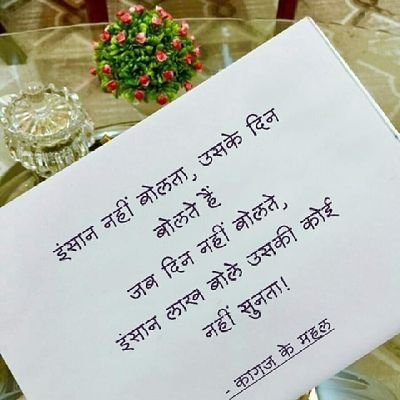 इंसान नहीं बोलता, उसके दिन
बोलते हैं
जब दिन नहीं बोलते,
इंसान लाख बोले उसकी कोई
नहीं सुनता!
- कागज के महल